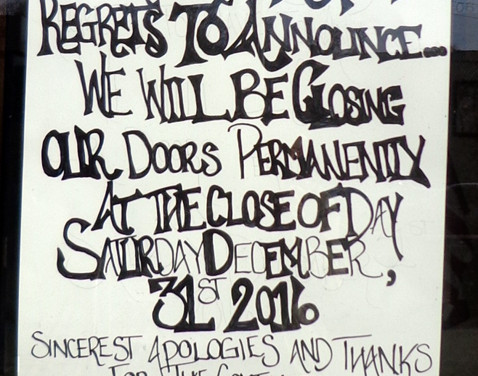 REGRETS TO ANNOUNCE...
WE WILL BE CLOSING
OUR DOORS PERMANENTLY
AT THE CLOSE OF DAY
SATURDAY DECEMBER,
31ST 2016
SINCEREST APOLOGIES AND THANKS
FOR THE